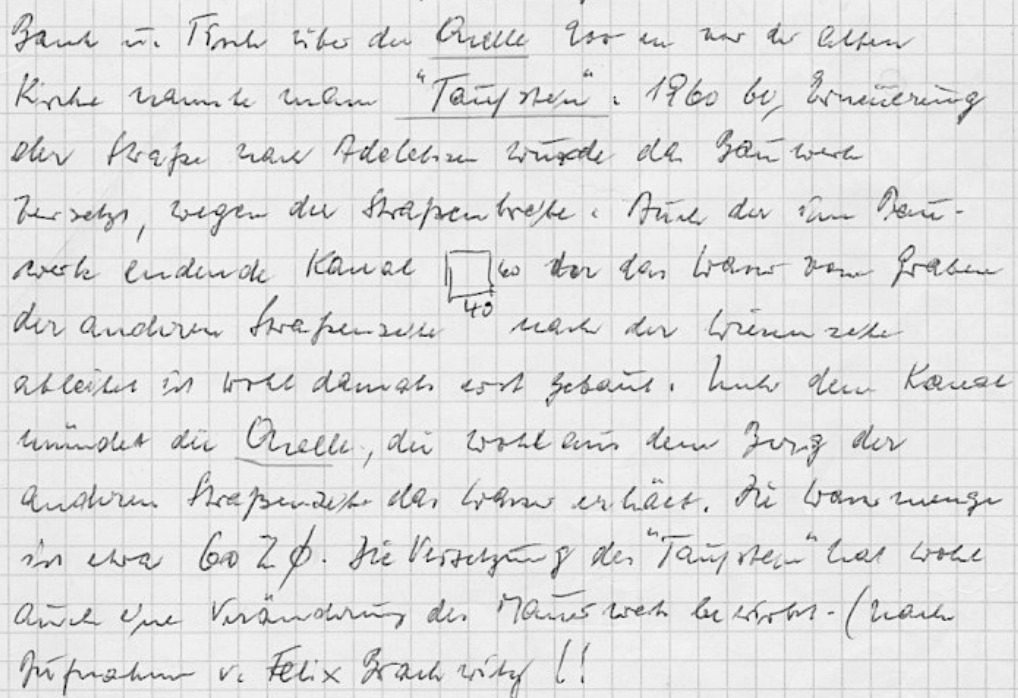 Bank u. Tisch über der Quelle 900 m vor der alten
Kirche nannte man "Taufstein". 1960 bei Erneuerung
der Straße nach Adelebsen wurde das Bauwerk
versetzt, wegen der Straßenbreite. Auch der im Bau-
werk endende Kanal 60 40 der das Wasser vom Graben
der anderen Straßenseite nach der Wiesenseite
ableitet ist wohl damals erst gebaut. Unter dem Kanal
mündet die Quelle, die wohl aus dem Berg der
anderen Straßenseite das Wasser erhält. Die Wassermenge
ist etwa 60 Z ϕ. Die Versetzung des "Taufstein" hat wohl
auch eine Veränderung des Mauerwerk bewirkt - (nach
Aufnahme v. Felix Brachwitz !!